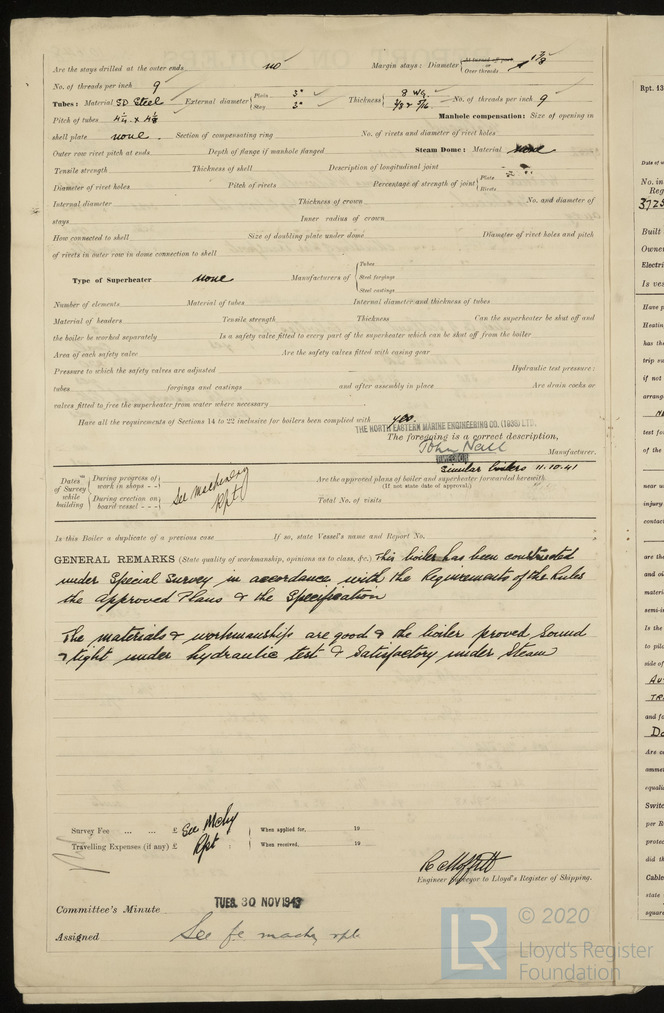 Are the stays drilled at the outer ends no Margin stays: Diameter { At turned off part or Over threads 1 7/8
No. of threads per inch 9
Tubes: Material SD Steel External diameter { Plate 3" Stay 3" Thickness { 8 WG. 9 No. of threads per inch 9
Pitch of tubes Manhole compensation: Size of opening in
shell plate none. Section of compensating ring No. of rivets and diameter of rivet holes
Outer row rivet pitch at ends Depth of flange if manhole flanged Steam Dome: Material none
Tensile strength Thickness of shell Description of longitudinal joint
Diameter of rivet holes Pitch of rivets Percentage of strength of joint { Plate Rivets
Internal diameter Thickness of crown No. and diameter of
stays Inner radius of crown
How connected to shell Size of doubling plate under dome Diameter of rivet holes and pitch
of rivets in outer row in dome connection to shell
Type of Superheater none Manufacturers of { Tubes Steel forgings Steel castings
Number of elements Material of tubes Internal diameter and thickness of tubes
Material of headers Tensile strength Thickness Can the superheater be shut off and
the boiler be worked separately Is a safety valve fitted to every part of the superheater which can be shut off from the boiler
Area of each safety valve Are the safety valves fitted with easing gear
Pressure to which the safety valves are adjusted Hydraulic test pressure:
tubes forgings and castings and after assembly in place Are drain cocks or
valves fitted to free the superheater from water where necessary
Have all the requirements of Sections 14 to 22 inclusive for boilers been complied with yes.
THE NORTH EASTERN MARINE ENGINEERING CO. (1938) LTD.
The foregoing is a correct description,
John Neill Manufacturer.
DIRECTOR
Dates of Survey while building { During progress of work in shops - - During erection on board vessel - - - } See Machinery Rpt. Are the approved plans of boiler and superheater forwarded herewith Similar boilers 11.10.41
(If not state date of approval.)
Total No. of visits
Is this Boiler a duplicate of a previous case If so, state Vessel's name and Report No.
GENERAL REMARKS (State quality of workmanship, opinions as to class, &c.) This boiler has been constructed
under Special Survey in accordance with the Requirements of the Rules
the approved Plans & the Specification
The materials & workmanship are good & the boiler proved Sound
& tight under hydraulic test & Satisfactory under Steam
Survey Fee ... ... £ See Mchy Rpt. { When applied for, 19
Travelling Expenses (if any) £ { When received, 19
Engineer Surveyor to Lloyd's Register of Shipping.
Committee's Minute TUES. 30 NOV 1943
Assigned See fe machy rpt.
Rpt. 13
Date of w
No. in
Reg
Built
Owner
Electri
Is ves
Have p
Heating
has the
trip va
if not
arrang
test fo
near u
injury
contac
are the
and oi
materia
semi-i
Is the
to pil
side of
AU
TR
and fo
Do
Are c
emme
equali
Switc
per R
protec
did th
Cable
state
squar
LR © 2020
Lloyd's Register
Foundation